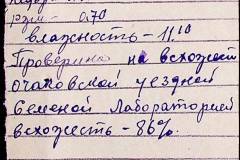 рзм. - 0.70
влажность - 11,10
Проверино на всхожест
очаковской уездной
Семеной Лабораторией
всхожесть - 86%.